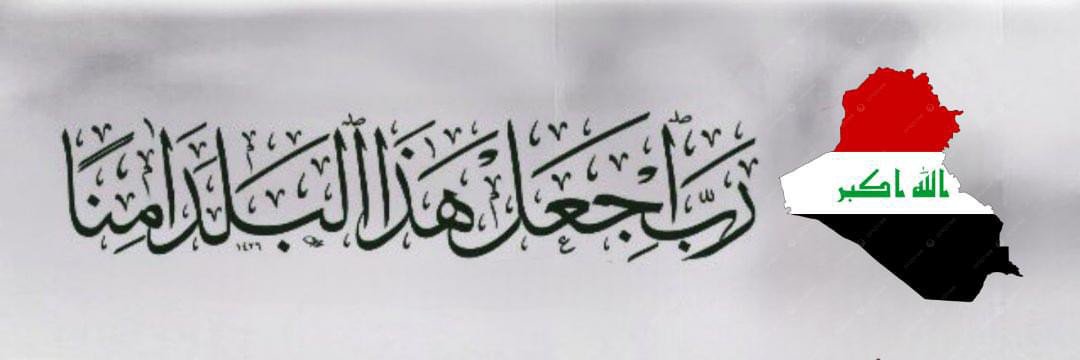 رَبِّ اجْعَلْ هَٰذَا الْبَلَدَ اٰمِنًا
١٤٢٦
الله اكبر